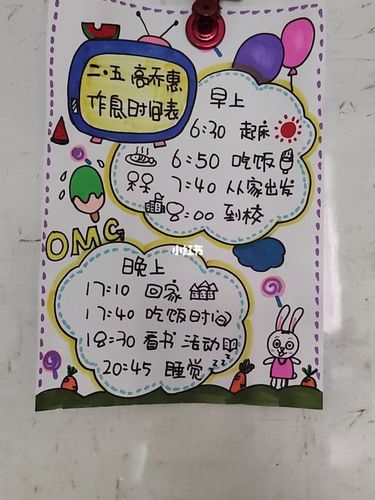 二·五 高乔惠
作息时间表
早上
6:30 起床
6:50 吃饭
7:40 从家出发
8:00 到校
OMG
小红书
晚上
17:10 回家
17:40 吃饭时间
18:30 看书活动
20:45 睡觉zzz